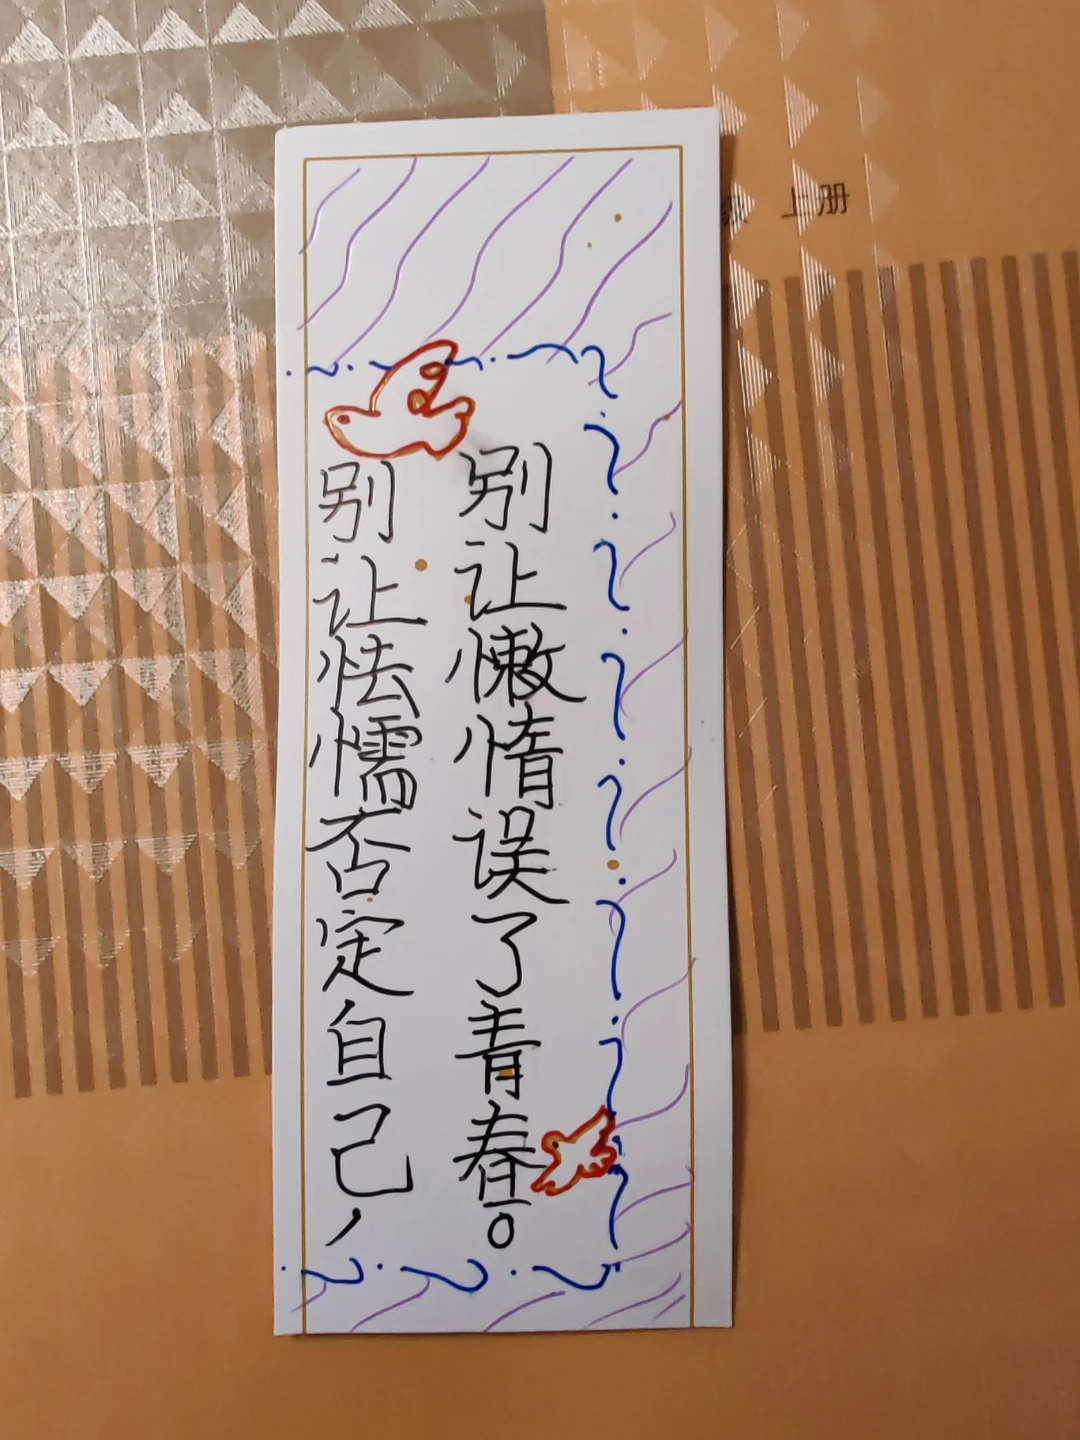 别让怯懦否定自己，
别让懒惰误了青春。
上册